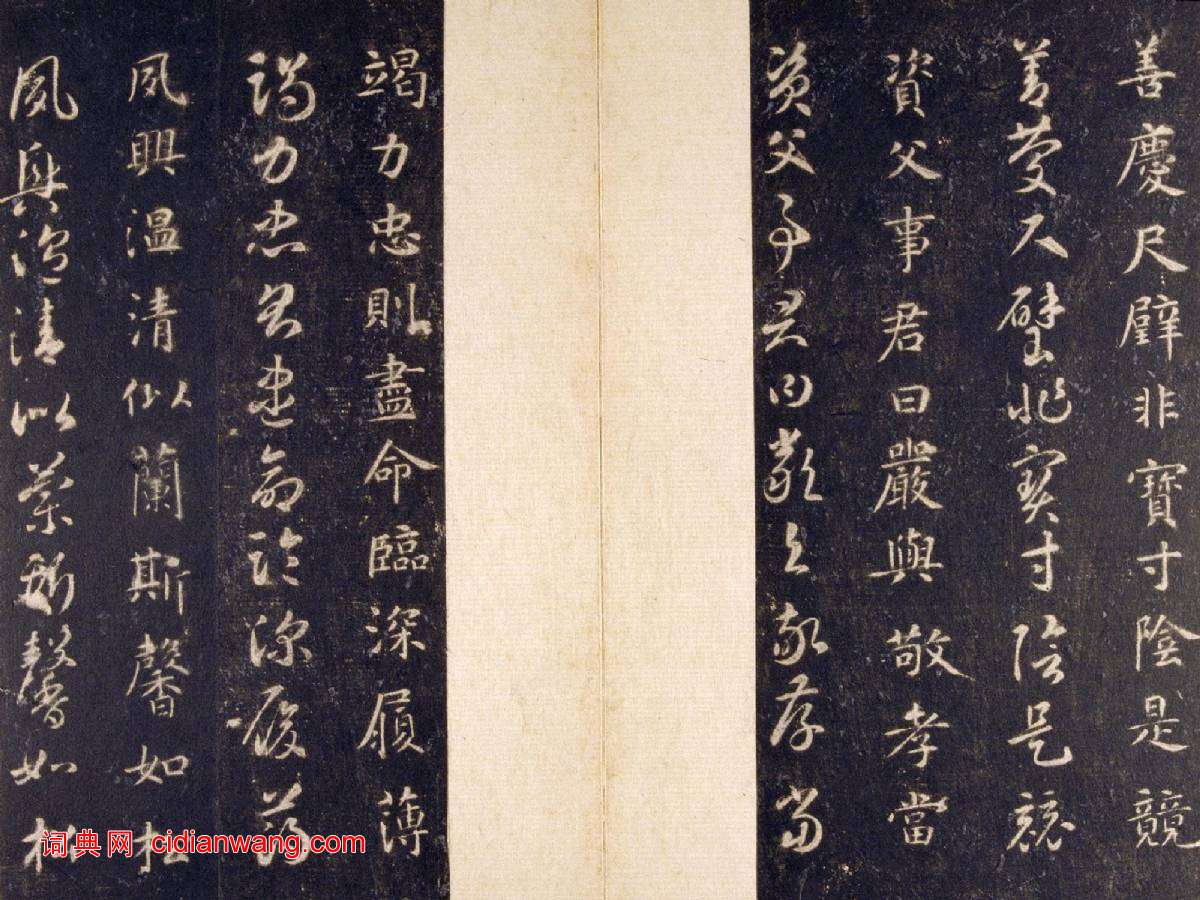 善慶尺璧非寶寸陰是競
善慶尺璧非寶寸陰是競
資父事君曰嚴與敬孝當
資父事君曰嚴與敬孝當
竭力忠則盡命臨深履薄
竭力忠則盡命臨深履薄
夙興溫清似蘭斯馨如松
夙興溫清似蘭斯馨如松
词典网：cidianwang.com